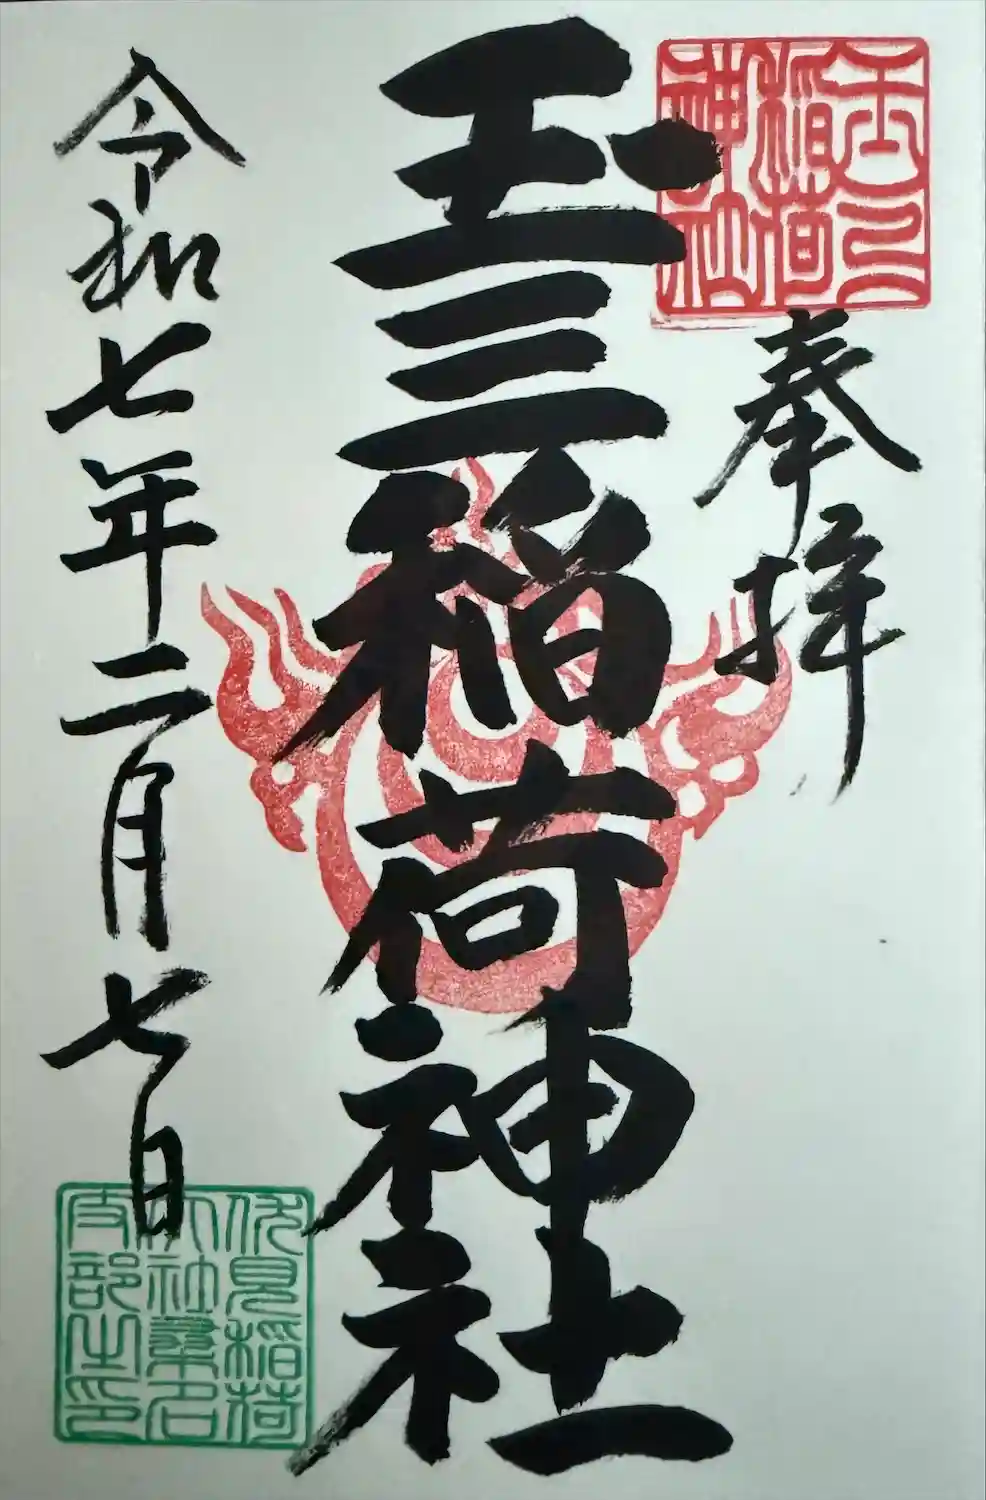 奉拝
玉三稲荷神社
令和七年二月七日
玉三
稲荷
神社
伏見稲荷
大社桑名
支部之印